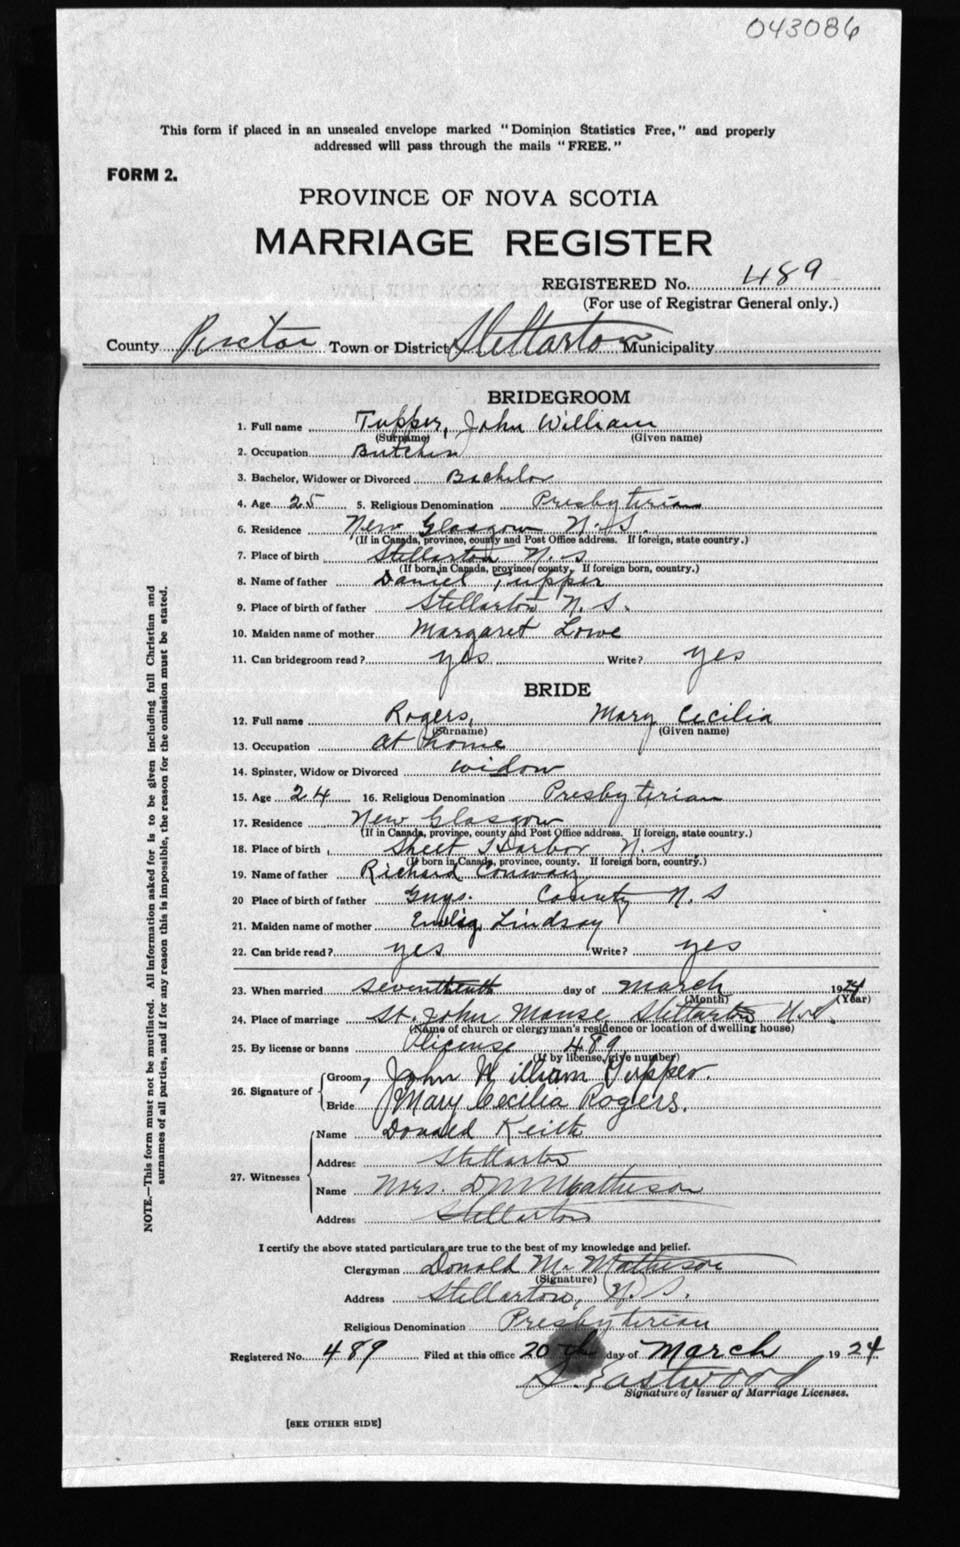 043086
This form if placed in an unsealed envelope marked "Dominion Statistics Free," and properly
addressed will pass through the mails "FREE."
FORM 2.
PROVINCE OF NOVA SCOTIA
MARRIAGE REGISTER
REGISTERED No. 489
(For use of Registrar General only.)
County Pictou Town or District Stellarton Municipality
BRIDEGROOM
1. Full name Tupper, John William
(Surname) (Given name)
2. Occupation Butcher
3. Bachelor, Widower or Divorced Bachelor
4. Age 25 5. Religious Denomination Presbyterian
6. Residence New Glasgow N.S.
(If in Canada, province, county and Post Office address. If foreign, state country.)
7. Place of birth Stellarton N.S
(If born in Canada, province, county. If foreign born, country.)
8. Name of father Daniel Tupper
9. Place of birth of father Stellarton N.S.
10. Maiden name of mother Margaret Lowe
11. Can bridegroom read? yes Write? yes
BRIDE
12. Full name Rogers, Mary Cecilia
(Surname) (Given name)
13. Occupation at home
14. Spinster, Widow or Divorced widow
15. Age 24 16. Religious Denomination Presbyterian
17. Residence New Glasgow
(If in Canada, province, county and Post Office address. If foreign, state country.)
18. Place of birth Sheet Harbor N.S
(If born in Canada, province, county. If foreign born, country.)
19. Name of father Richard Conway
20 Place of birth of father Guys. County N.S
21. Maiden name of mother Lindsay
22. Can bride read? yes Write? yes
23. When married seventeenth day of March 1924
(Month) (Year)
24. Place of marriage St. John Manse Stellarton N.S.
(Name of church or clergyman's residence or location of dwelling house)
25. By license or banns license 489
(If by license, give number)
26. Signature of Groom, John William Tupper.
Bride Mary Cecilia Rogers.
27. Witnesses Name Donald Keith
Address Stellarton
Name Mrs. D M Matheson
Address Stellarton
I certify the above stated particulars are true to the best of my knowledge and belief.
Clergyman Donald Mc Matheson
(Signature)
Address Stellarton, N.S.
Religious Denomination Presbyterian
Registered No. 489 Filed at this office 20th day of March 1924
Eastwood
Signature of Issuer of Marriage Licenses.
[SEE OTHER SIDE]
NOTE.—This form must not be mutilated. All information asked for is to be given including full Christian and
surnames of all parties, and if for any reason this is impossible, the reason for the omission must be stated.